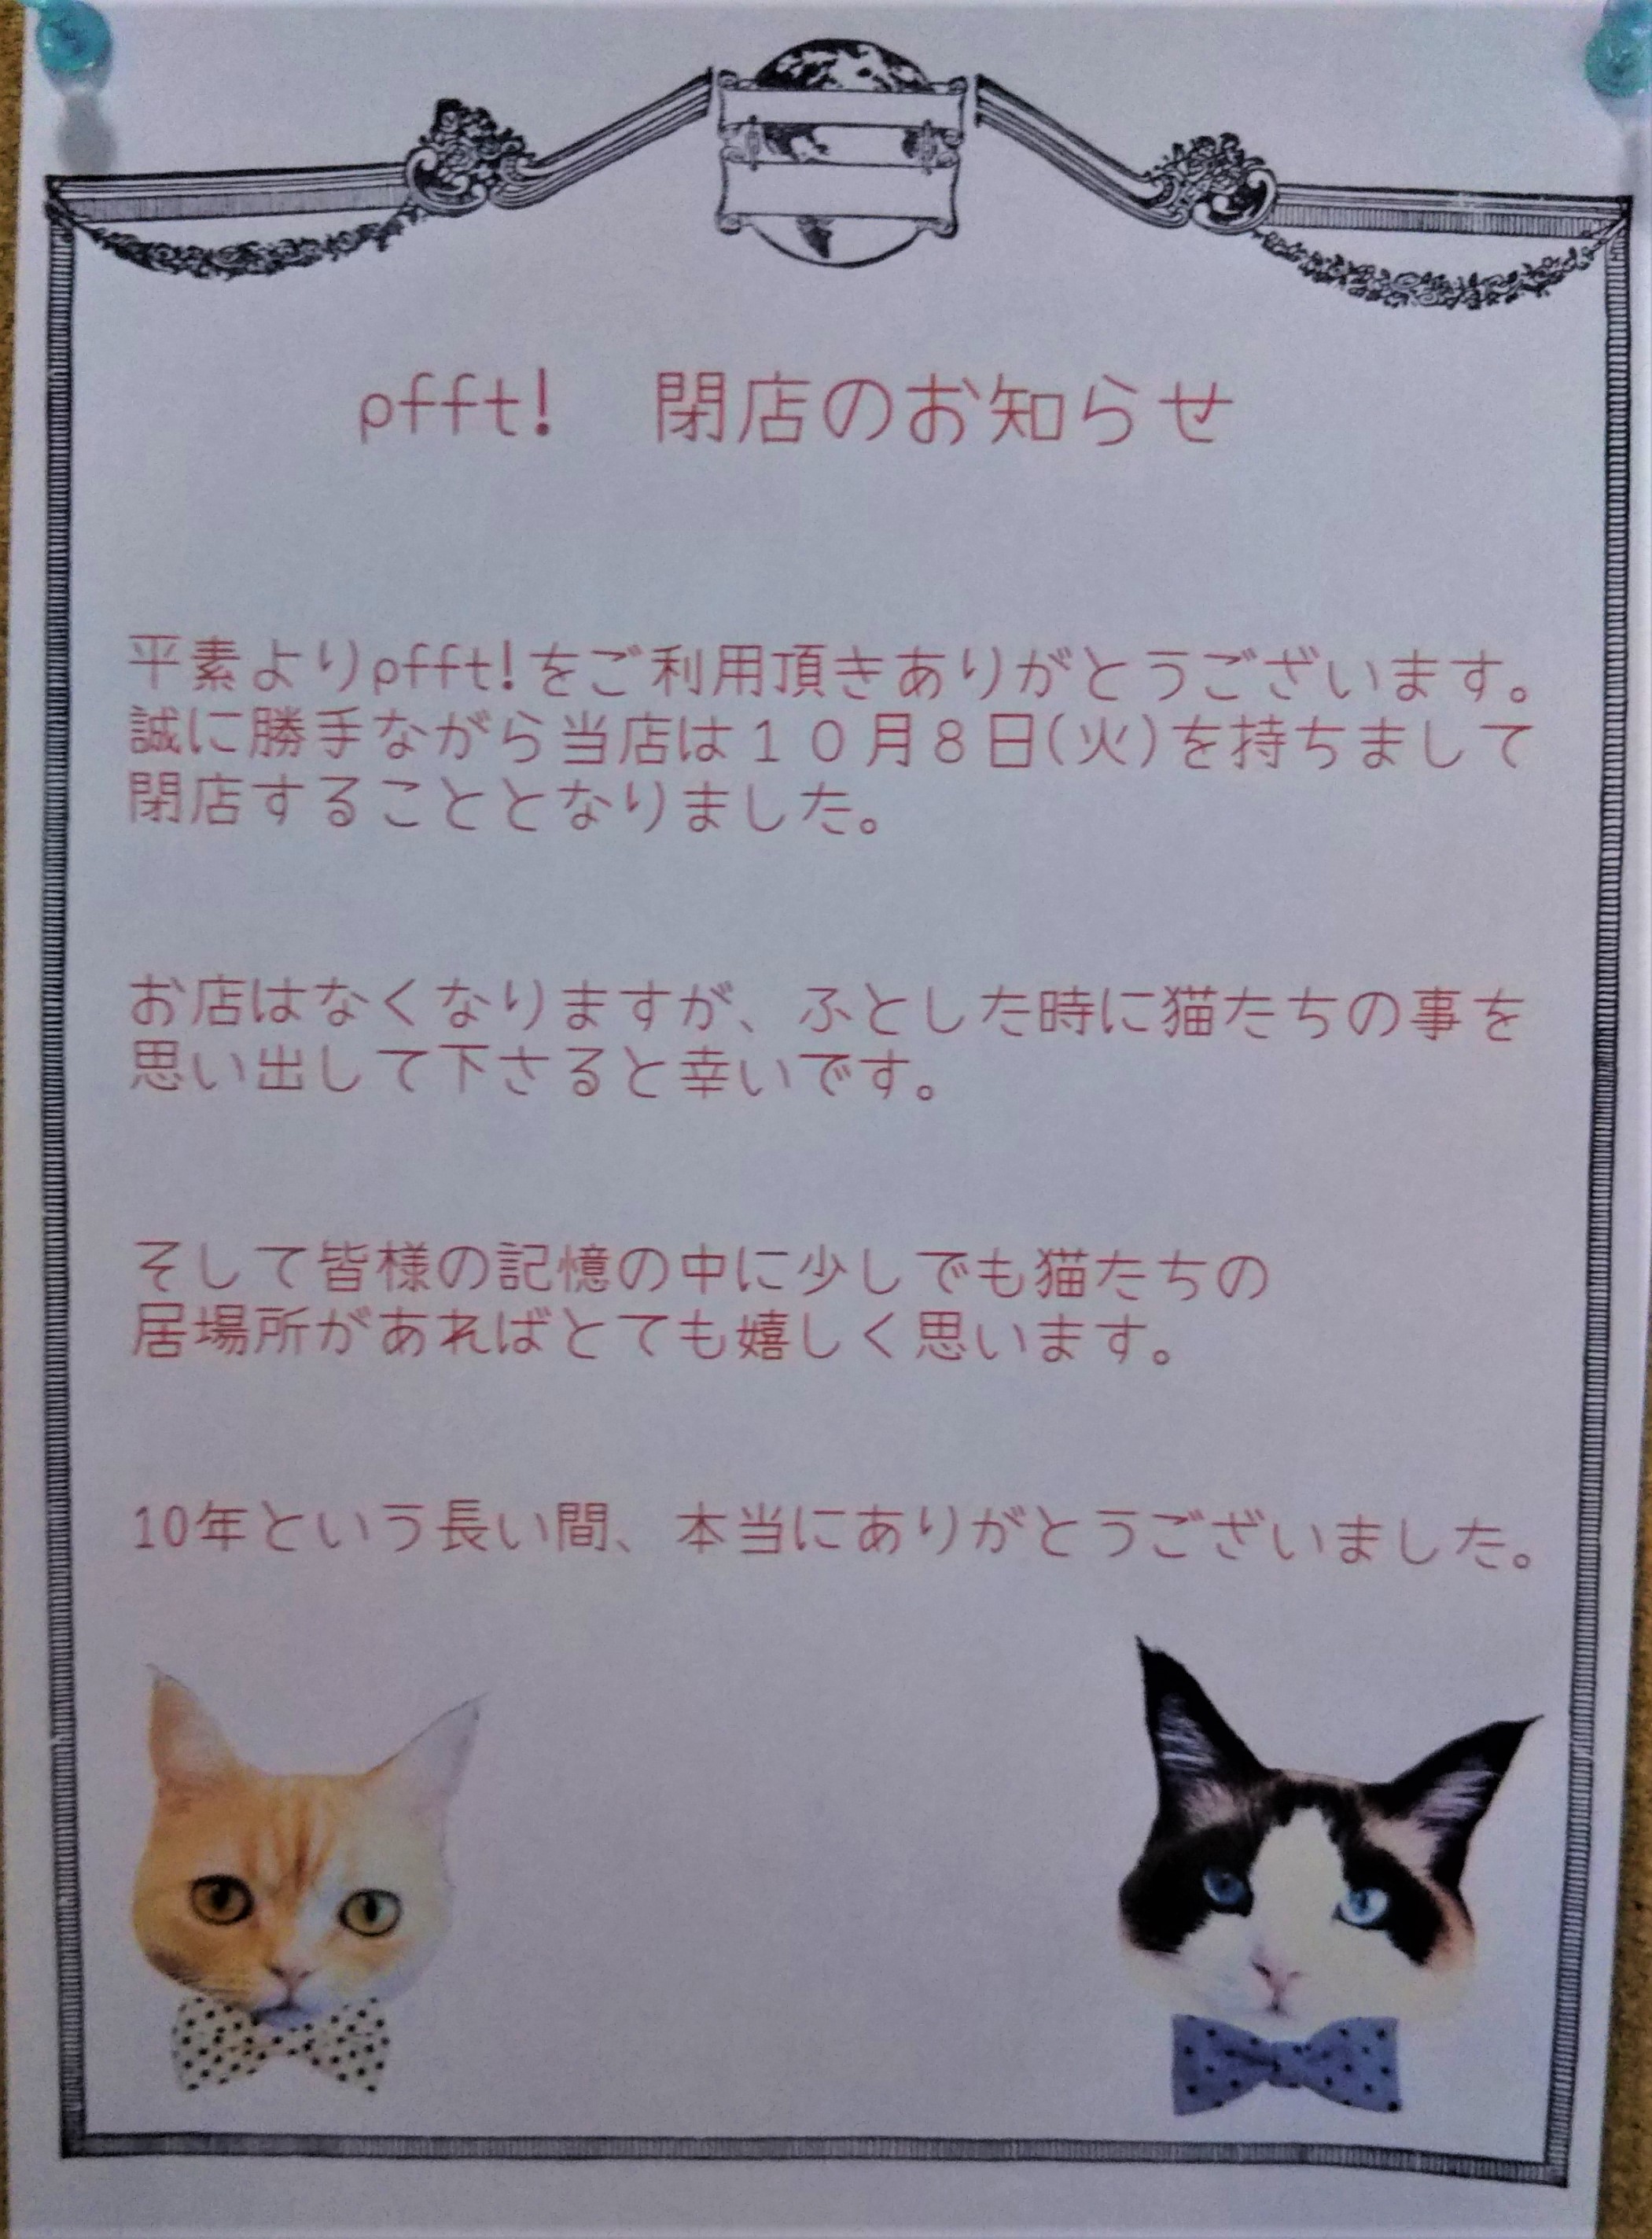 pfft!　閉店のお知らせ
平素よりpfft!をご利用頂きありがとうございます。
誠に勝手ながら当店は１０月８日(火)を持ちまして
閉店することとなりました。
お店はなくなりますが、ふとした時に猫たちの事を
思い出して下さると幸いです。
そして皆様の記憶の中に少しでも猫たちの
居場所があればとても嬉しく思います。
10年という長い間、本当にありがとうございました。